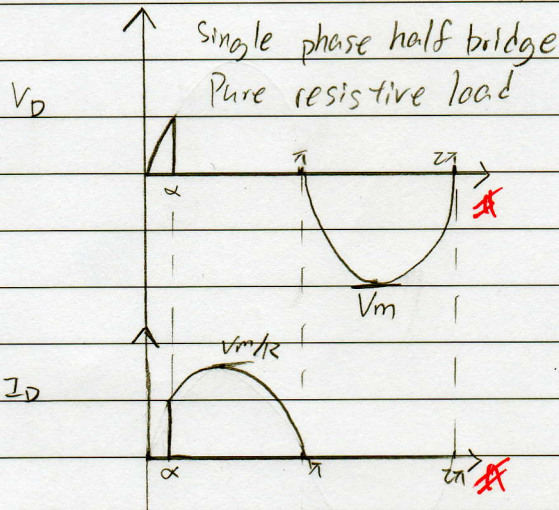 Single phase half bridge
Pure resistive load
V_D
α π 2π
Vm
Vm/R
I_D
α π 2π